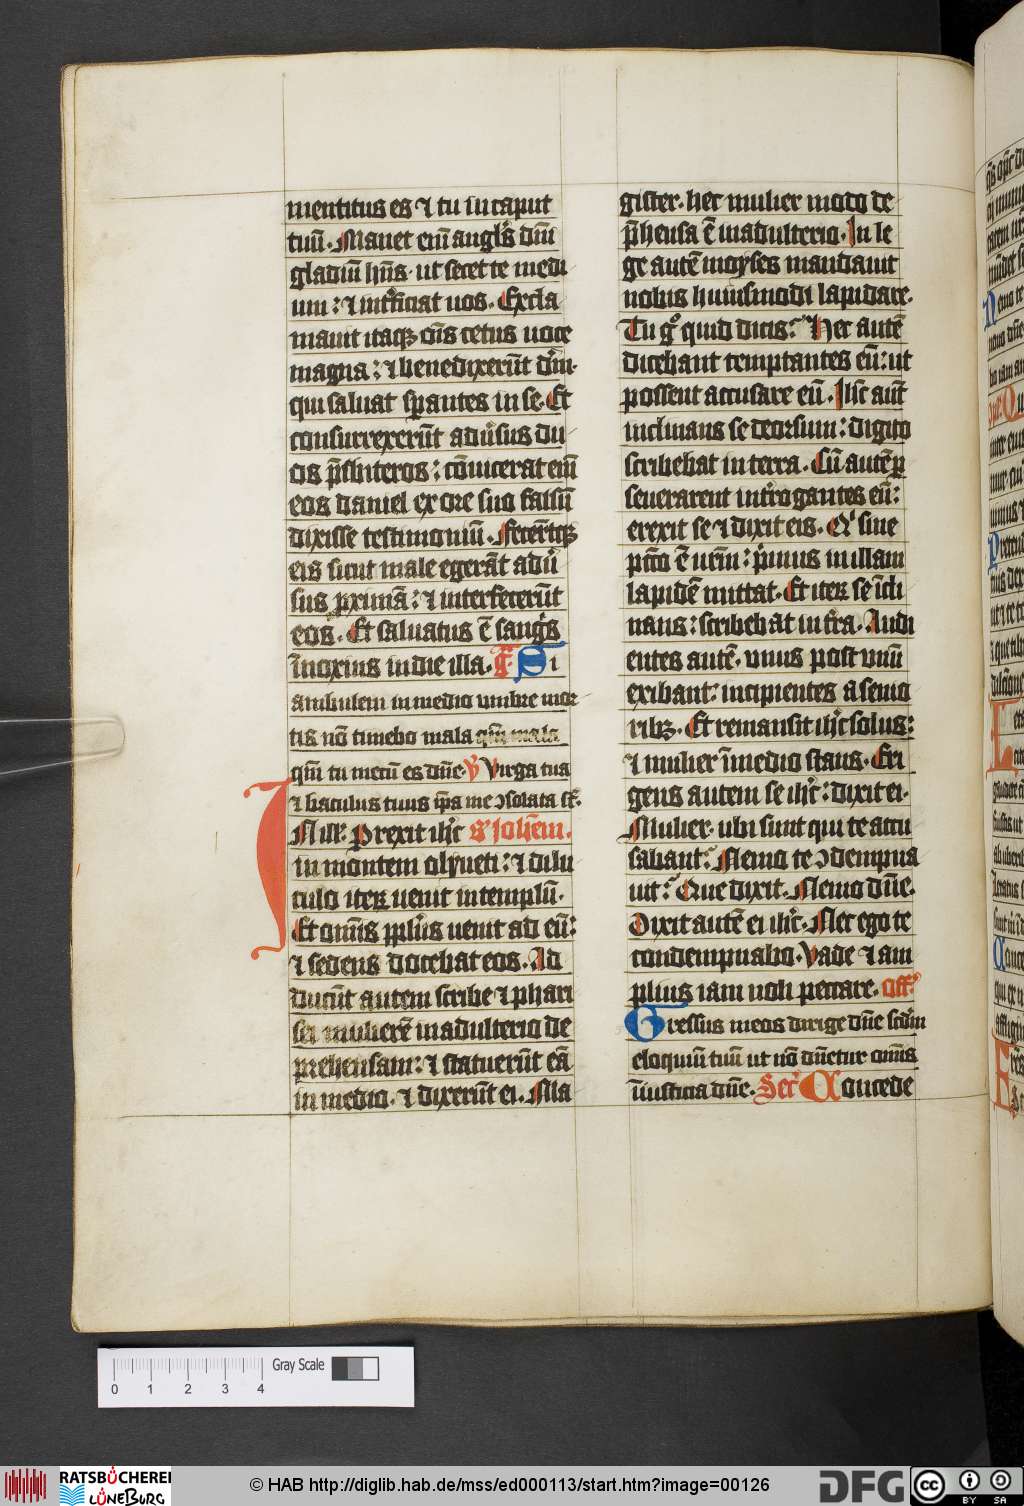 mentitus es ⁊ tu in caput
tuū. Manet em̄ angl's dn̄i
gladiū hn̄s. ut secet te medi
um: ⁊ int'ficiat uos. Excla
mauit itaqꝫ oīs cetus uoce
magna: ⁊ benedixer̄ut dn̄m.
qui saluat sp̄antes in se. Et
consurrexer̄ut adūsus du
os p̄sbiteros: cōuicerat em̄
eos daniel ex ore suo falsū
dixisse testimoniū. Feceruntqꝫ
eis sicut male egerāt adū
sus ꝓximū: ⁊ interfecer̄ut
eos. Et saluatus ē sangs
īnoxius in die illa. Gr. Si
ambulem in medio umbre mor
tis nō timebo mala qm̄ mala
qm̄ tu mecū es dn̄e. V Virga tua
⁊ baculus tuus ip̄a me ↄsolata st̄.
IN ill'. Perexit ih̄c S' Joh̄em.
in montem olyueti: ⁊ dilu
culo iteꝝ uenit in templū.
Et omīs ppl's uenit ad eū:
⁊ sedens docebat eos. Ad
ducūt autem scribe ⁊ phari
sei mulierē in adulterio de
prehensam: ⁊ statuer̄ut eā
in medio. ⁊ dixer̄ut ei. Ma
gister. hec mulier modo de
p̄hensa ē in adulterio. In le
ge autē moyses mandauit
nobis huiusmodi lapidare.
Tu g° quid dicis? Hec autē
dicebant temptantes eū: ut
possent accusare eū. Ih̄c aūt
inclinans se deorsum: digito
scribebat in terra. Cū autē ꝑ
seuerarent int'rogantes eū:
erexit se ⁊ dixit eis. Q' sine
pctō ē ur̄m: p'mus in illam
lapidē mittat. Et iteꝝ se īcli
nans: scribebāt in t'ra. Audi
entes autē. unus post unū
exibant: incipientes a senio
ribꝫ. Et remansit ih̄c solus:
⁊ mulier ī medio stans. Eri
gens autem se ih̄c: dixit ei.
Mulier. ubi sunt qui te accu
sabant? Nemo te ↄdempna
uit? Que dixit. Nemo dn̄e.
Dixit autē ei ih̄c. Nec ego te
condempnabo. Vade ⁊ iam
plius iam noli peccare. Off.
Gressus meos dirige dn̄e scdm̄
eloquiū tuū ut nō dn̄etur omīs
īiusticia dn̄e. Secr' Concede
Gray Scale
0 1 2 3 4
RATSBÜCHEREI
LÜNEBURG
© HAB http://diglib.hab.de/mss/ed000113/start.htm?image=00126
DFG
cc BY SA